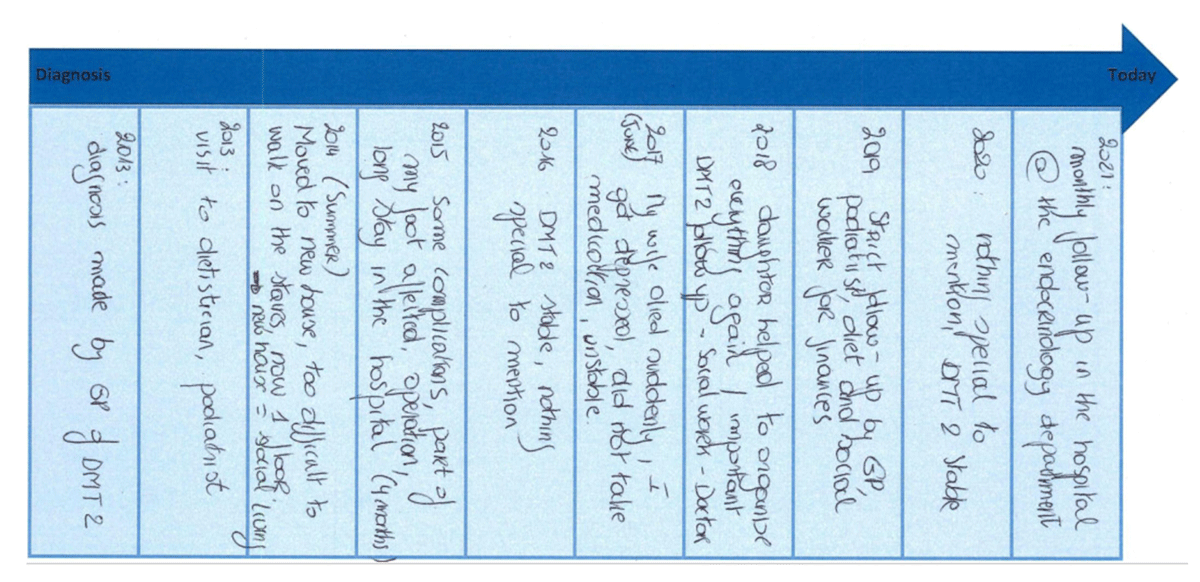 Diagnosis
Today
2013:
diagnosis made by GP of DMT2
2013:
visit to dietistician, podiatrist
2014 (Summer)
Moved to new house, too difficult to
walk on the staires, now 1 floor,
→ new house = social living
2015 Some complications, part of
my foot affected, operation,
long stay in the hospital (4 months)
2016 DMT2 stable, nothing
special to mention
2017 My wife died suddenly, I
(June) got depressed, did not take
medication, unstable.
2018 daughter helped to organise
everything again / important
DMT2 follow up - social work - Doctor
2019 Strict follow-up by GP,
podiatrist, diet and social
worker for finances
2020: nothing special to
mention, DMT2 stable
2021:
monthly follow-up in the hospital
@ the endocrinology department